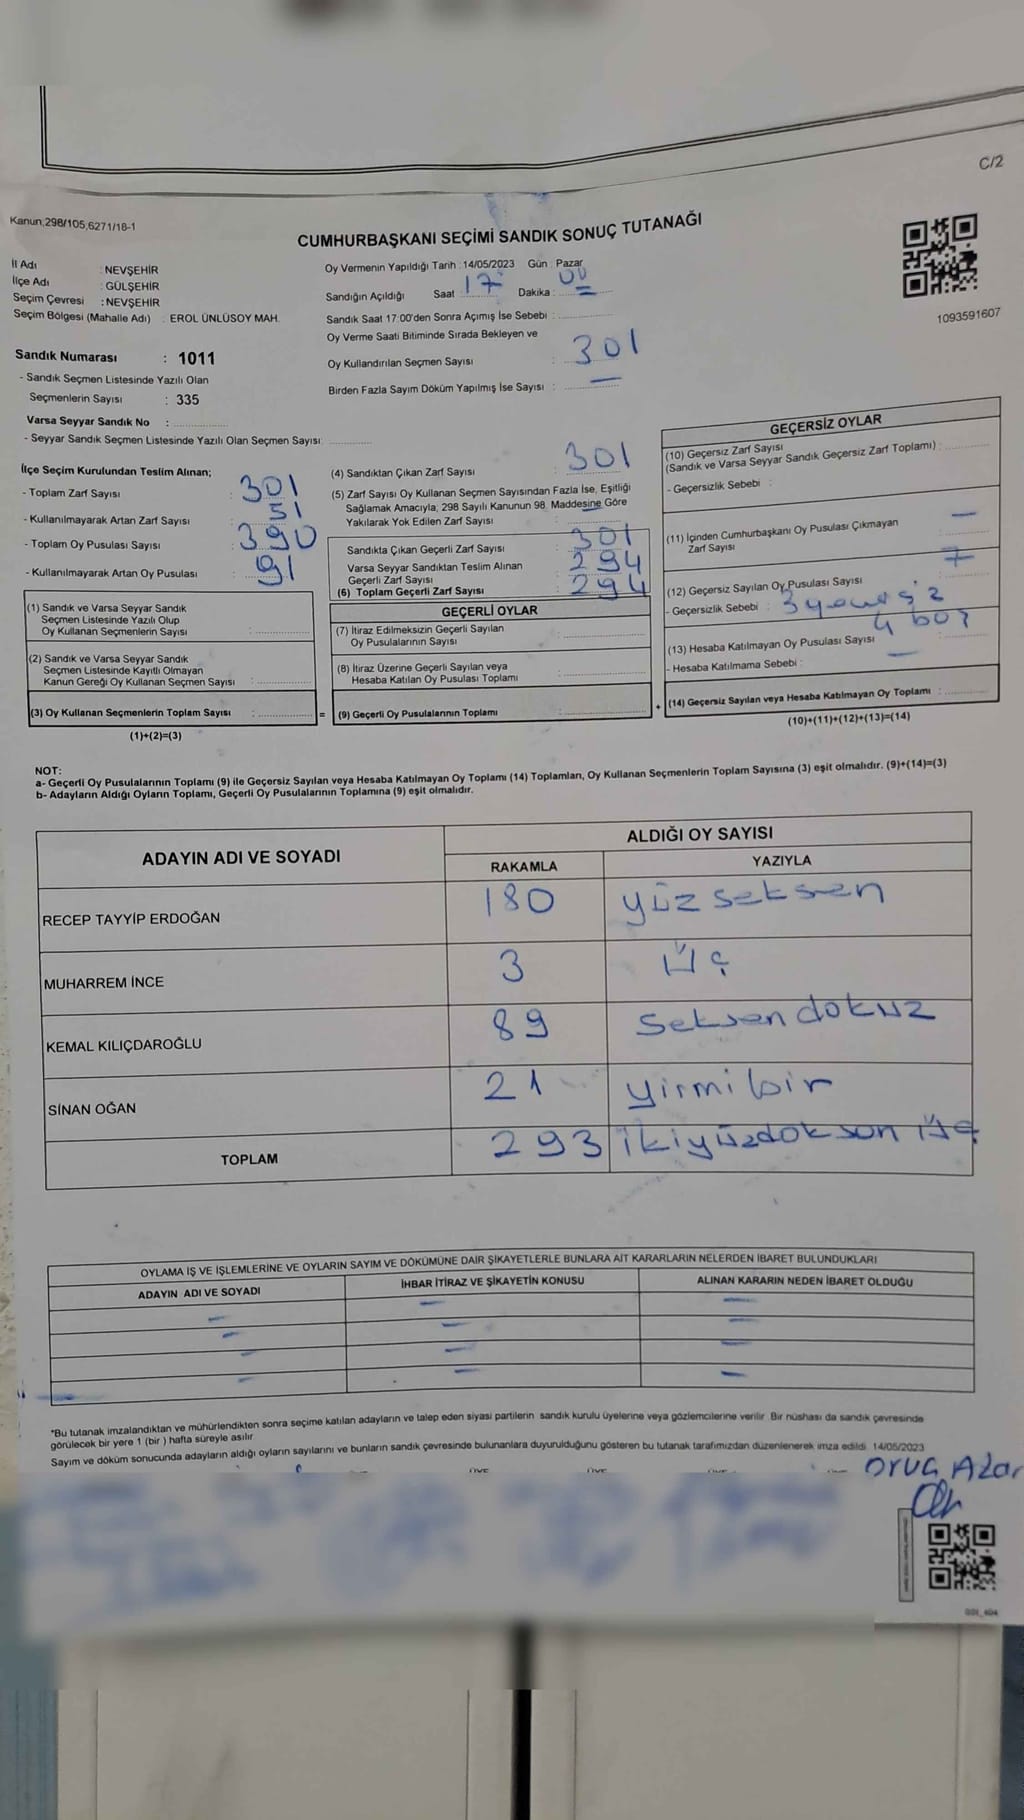 C/2
Kanun,298/105,6271/18-1
CUMHURBAŞKANI SEÇİMİ SANDIK SONUÇ TUTANAĞI
İl Adı : NEVŞEHİR
İlçe Adı : GÜLŞEHİR
Seçim Çevresi : NEVŞEHİR
Seçim Bölgesi (Mahalle Adı) : EROL ÜNLÜSOY MAH.
Sandık Numarası : 1011
- Sandık Seçmen Listesinde Yazılı Olan
Seçmenlerin Sayısı : 335
Varsa Seyyar Sandık No :
- Seyyar Sandık Seçmen Listesinde Yazılı Olan Seçmen Sayısı:
Oy Vermenin Yapıldığı Tarih :14/05/2023 Gün : Pazar
Sandığın Açıldığı Saat 17 Dakika : 00
Sandık Saat 17:00'den Sonra Açımış İse Sebebi :
Oy Verme Saati Bitiminde Sırada Bekleyen ve
Oy Kullandırılan Seçmen Sayısı : 301
Birden Fazla Sayım Döküm Yapılmış İse Sayısı : —
1093591607
İlçe Seçim Kurulundan Teslim Alınan;
- Toplam Zarf Sayısı : 301
- Kullanılmayarak Artan Zarf Sayısı : 51
- Toplam Oy Pusulası Sayısı : 390
- Kullanılmayarak Artan Oy Pusulası : 91
(1) Sandık ve Varsa Seyyar Sandık
Seçmen Listesinde Yazılı Olup
Oy Kullanan Seçmenlerin Sayısı :
(2) Sandık ve Varsa Seyyar Sandık
Seçmen Listesinde Kayıtlı Olmayan
Kanun Gereği Oy Kullanan Seçmen Sayısı :
(3) Oy Kullanan Seçmenlerin Toplam Sayısı : =
(1)+(2)=(3)
(4) Sandıktan Çıkan Zarf Sayısı : 301
(5) Zarf Sayısı Oy Kullanan Seçmen Sayısından Fazla İse, Eşitliği
Sağlamak Amacıyla, 298 Sayılı Kanunun 98. Maddesine Göre
Yakılarak Yok Edilen Zarf Sayısı : —
Sandıkta Çıkan Geçerli Zarf Sayısı : 301
Varsa Seyyar Sandıktan Teslim Alınan
Geçerli Zarf Sayısı : 294
(6) Toplam Geçerli Zarf Sayısı : 294
GEÇERLİ OYLAR
(7) İtiraz Edilmeksizin Geçerli Sayılan
Oy Pusulalarının Sayısı :
(8) İtiraz Üzerine Geçerli Sayılan veya
Hesaba Katılan Oy Pusulası Toplamı :
(9) Geçerli Oy Pusulalarının Toplamı : +
GEÇERSİZ OYLAR
(10) Geçersiz Zarf Sayısı
(Sandık ve Varsa Seyyar Sandık Geçersiz Zarf Toplamı) :
- Geçersizlik Sebebi :
(11) İçinden Cumhurbaşkanı Oy Pusulası Çıkmayan
Zarf Sayısı —
(12) Geçersiz Sayılan Oy Pusulası Sayısı 7
- Geçersizlik Sebebi : 3
4 boş
(13) Hesaba Katılmayan Oy Pusulası Sayısı :
- Hesaba Katılmama Sebebi : —
(14) Geçersiz Sayılan veya Hesaba Katılmayan Oy Toplamı :
(10)+(11)+(12)+(13)=(14)
NOT:
a- Geçerli Oy Pusulalarının Toplamı (9) ile Geçersiz Sayılan veya Hesaba Katılmayan Oy Toplamı (14) Toplamları, Oy Kullanan Seçmenlerin Toplam Sayısına (3) eşit olmalıdır. (9)+(14)=(3)
b- Adayların Aldığı Oyların Toplamı, Geçerli Oy Pusulalarının Toplamına (9) eşit olmalıdır.
ADAYIN ADI VE SOYADI ALDIĞI OY SAYISI
RAKAMLA YAZIYLA
RECEP TAYYİP ERDOĞAN 180 yüz seksen
MUHARREM İNCE 3 Üç
KEMAL KILIÇDAROĞLU 89 Seksen dokuz
SİNAN OĞAN 21 yirmi bir
TOPLAM 293 ikiyüzdoksan üç
OYLAMA İŞ VE İŞLEMLERİNE VE OYLARIN SAYIM VE DÖKÜMÜNE DAİR ŞİKAYETLERLE BUNLARA AİT KARARLARIN NELERDEN İBARET BULUNDUKLARI
ADAYIN ADI VE SOYADI İHBAR İTİRAZ VE ŞİKAYETİN KONUSU ALINAN KARARIN NEDEN İBARET OLDUĞU
— — —
— — —
— — —
— — —
*Bu tutanak imzalandıktan ve mühürlendikten sonra seçime katılan adayların ve talep eden siyasi partilerin sandık kurulu üyelerine veya gözlemcilerine verilir. Bir nüshası da sandık çevresinde
görülecek bir yere 1 (bir ) hafta süreyle asılır.
Sayım ve döküm sonucunda adayların aldığı oyların sayılarını ve bunların sandık çevresinde bulunanlara duyurulduğunu gösteren bu tutanak tarafımızdan düzenlenerek imza edildi. 14/05/2023